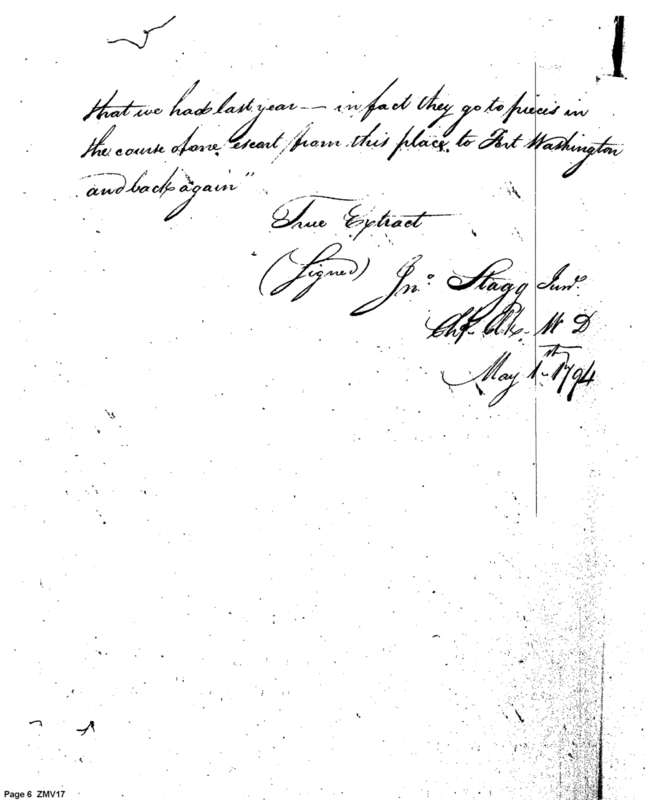 that we had last year — in fact they go to pieces in
the course of one escort from this place to Fort Washington
and back again"
True Extract
(Signed)
Jno. Stagg Junr.
Chf. Clk. W D
May 1st 1794
Page 6 ZMV17